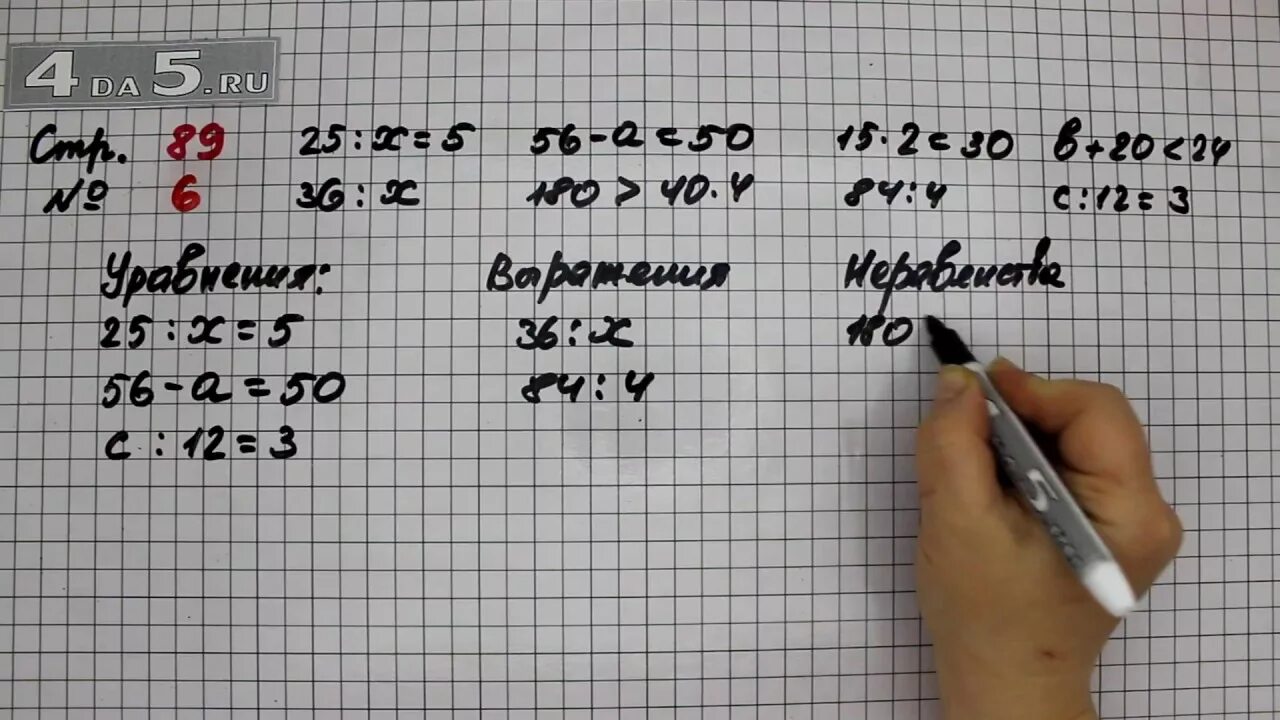 4DA5.RU
Стр. 89 25 : x = 5 56 - a = 50 15 · 2 = 30 в + 20 < 24
№ 6 36 : x 180 > 40 · 4 84 : 4 с : 12 = 3
Уравнения: Выражения Неравенства
25 : x = 5 36 : x 180
56 - a = 50 84 : 4
с : 12 = 3
5